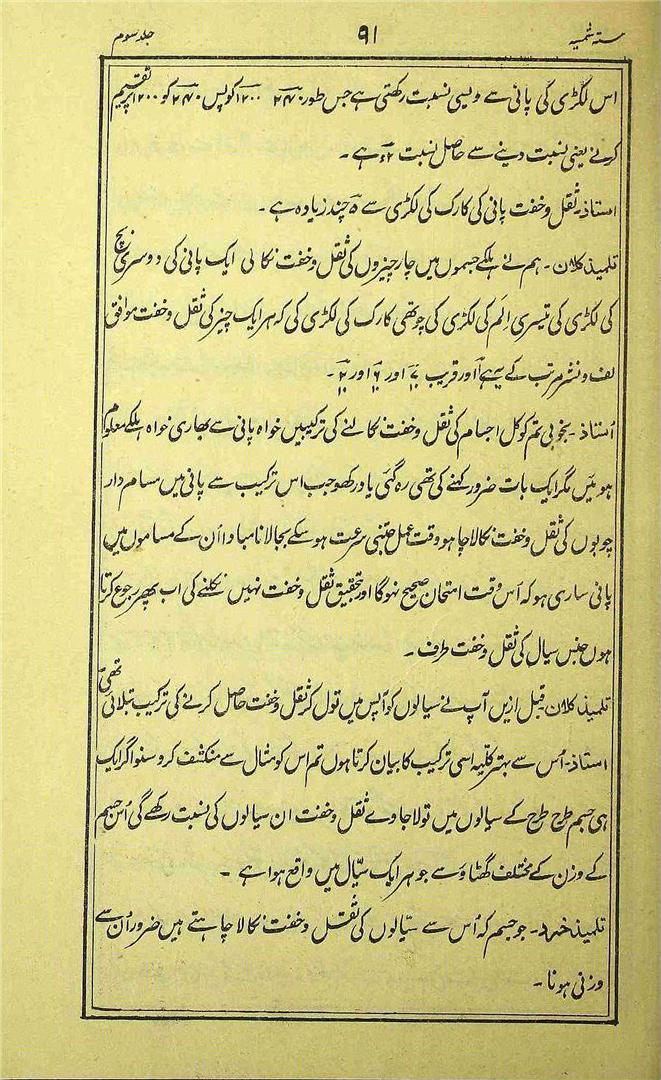 ستہ شمسیہ ۹۱ جلد سوم
اس لکڑی کی پانی سے ویسی نسبت رکھتی ہے جس طور ۲۴۰ ۱۲۰۰ کو پس ۲۴۰ کو ۱۲۰۰ پر تقسیم
کرنے یعنی نسبت دینے سے حاصل نسبت ۲ء ہے ۔
استاذ ۔ ثقل و خفت پانی کی کارک کی لکڑی سے ۵ چند زیادہ ہے ۔
تلمیذ کلان ۔ ہم نے ہلکے جسموں میں چار چیزوں کی ثقل و خفت نکالی ایک پانی کی دوسری بیچ
کی لکڑی کی تیسری الم کی لکڑی کی چوتھی کارک کی لکڑی کی کہ ہر ایک چیز کی ثقل و خفت موافق
لف و نشر مرتب کے یہ ہے ۱ اور قریب ۷/۱۰ اور ۶/۱۰ اور ۲/۱۰ ۔
اُستاذ ۔ بخوبی تم کو کل اجسام کی ثقل و خفت نکالنے کی ترکیبیں خواہ پانی سے بھاری خواہ ہلکے معلوم
ہوئیں مگر ایک بات ضرور کہنے کی تھی رہ گئی یاد رکھو جب اس ترکیب سے پانی میں مسام دار
چوبوں کی ثقل و خفت نکالا چاہو وقت عمل جتنی سرعت ہو سکے بجا لانا مبادا اُن کے مساموں میں
پانی ساری ہو کہ اُس وقت امتحان صحیح نہوگا اور تحقیق ثقل و خفت نہیں نکلنے کی اب پھر رجوع کرتا
ہوں جنس سیال کی ثقل و خفت طرف ۔
تلمیذ کلان قبل ازیں آپ نے سیالوں کو آپس میں تول کر ثقل و خفت حاصل کرنے کی ترکیب بتلائی تھی
استاذ ۔ اُس سے بہتر کلیہ اسی ترکیب کا بیان کرتا ہوں تم اس کو مثال سے منکشف کرو سنو اگر ایک
ہی جسم طرح طرح کے سیالوں میں تولا جاوے ثقل و خفت ان سیالوں کی نسبت رکھے گی اُس جسم
کے وزن کے مختلف گھٹاؤ سے جو ہر ایک سیّال میں واقع ہوا ہے ۔
تلمیذ خرد ۔ جو جسم کہ اُس سے سیّالوں کی ثقل و خفت نکالا چاہتے ہیں ضرور اُن سے
وزنی ہونا ۔